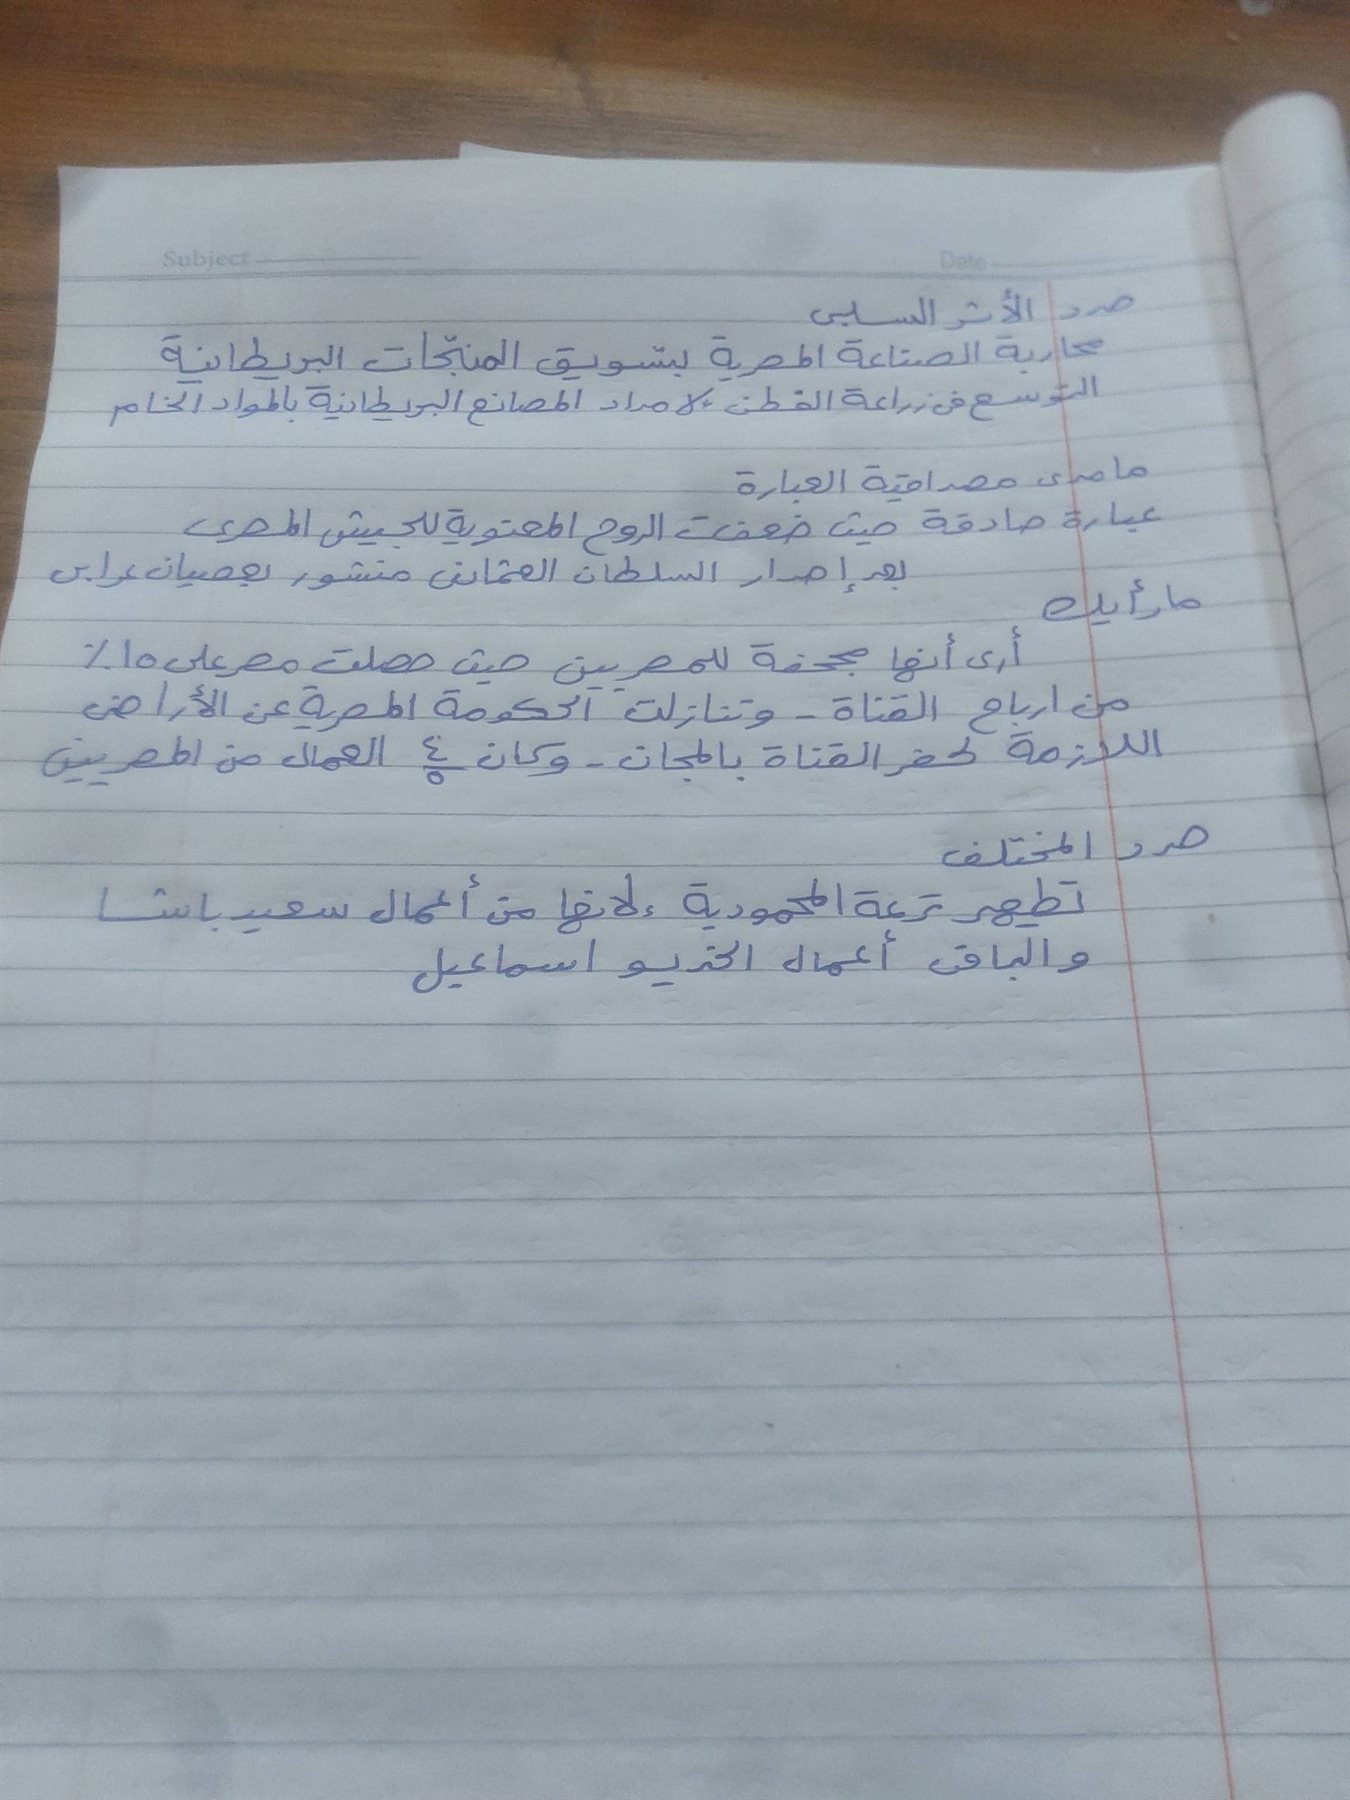 Subject
Date
حدد الأثر السلبى
محاربة الصناعة المصرية لتسويق المنتجات البريطانية
التوسع فى زراعة القطن لامداد المصانع البريطانية بالمواد الخام
ما مدى مصداقية العبارة
عبارة صادقة حيث ضعفت الروح المعنوية للجيش المصرى
بعد إصدار السلطان العثمانى منشور بعصيان عرابى
ما رأيك
أرى أنها مجحفة للمصريين حيث حصلت مصر على ١٥٪
من ارباح القناة - وتنازلت الحكومة المصرية عن الأراضى
اللازمة لحفر القناة بالمجان - وكان ٤/٥ العمال من المصريين
حدد المختلف
تطهير ترعة المحمودية لانها من أعمال سعيد باشا
والباقى أعمال الخديو اسماعيل